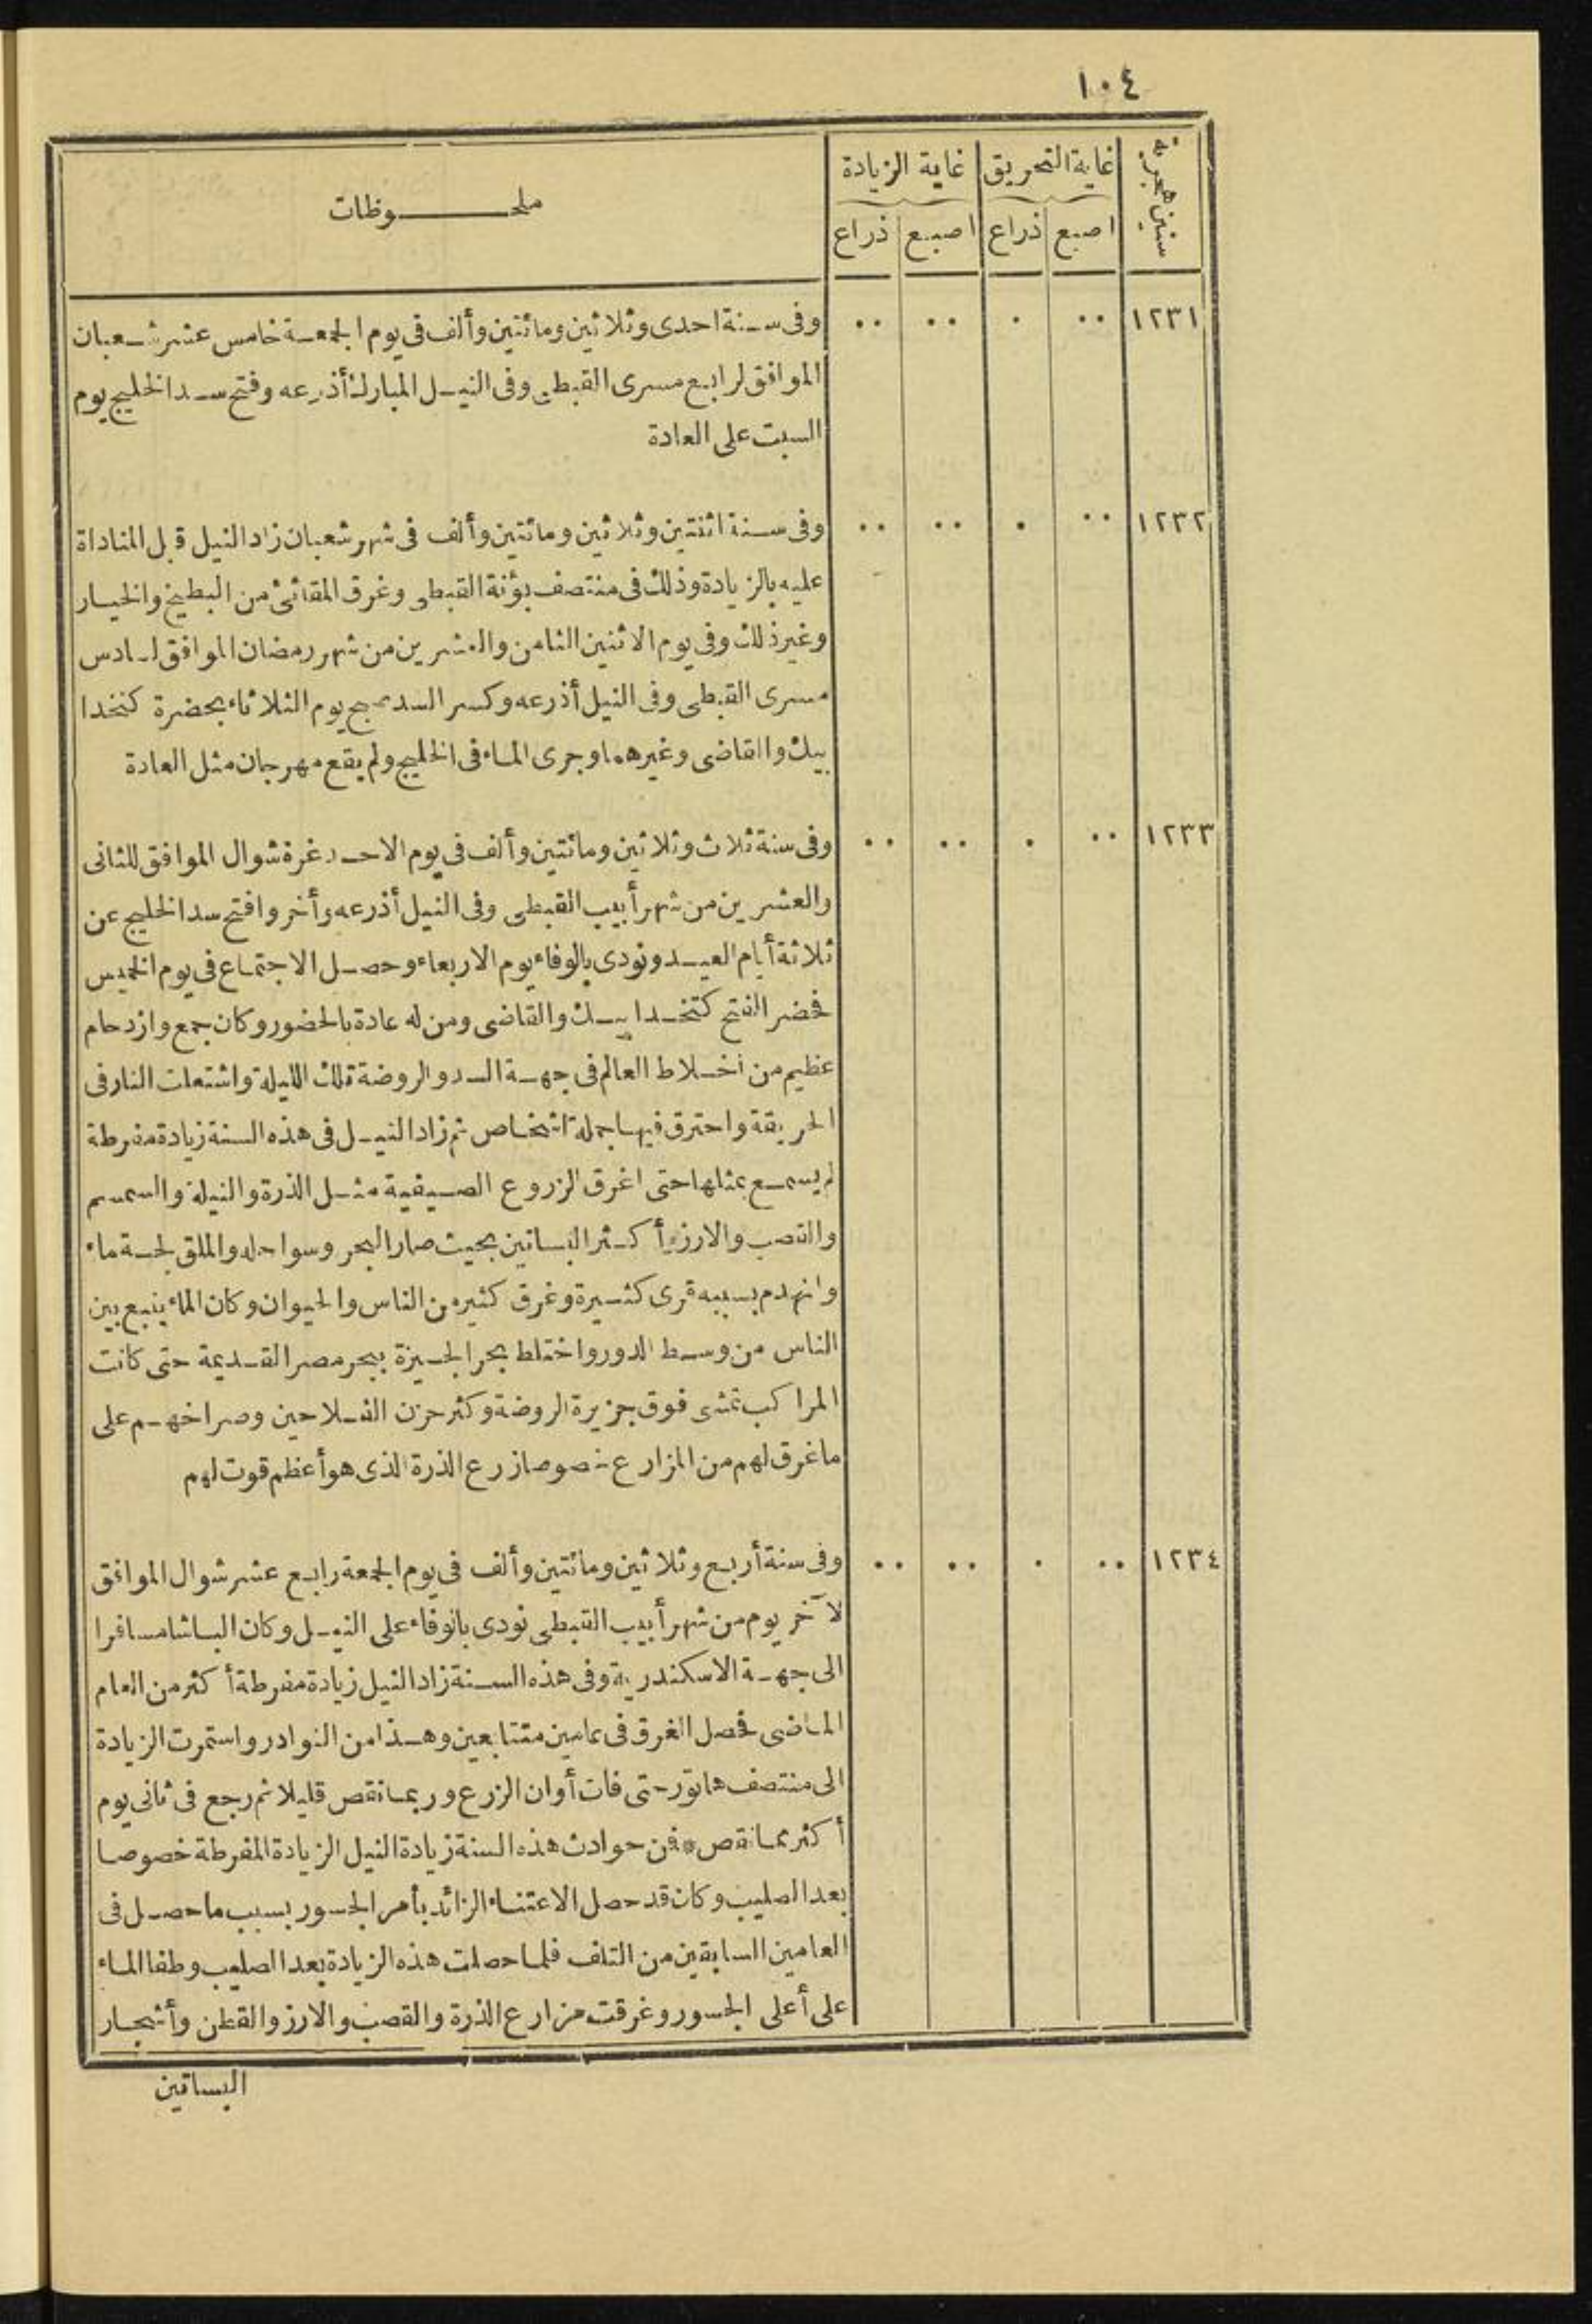 ١٠٤
سنين هجرية
غاية التحريق
غاية الزيادة
ملحوظات
اصبع ذراع اصبع ذراع
١٢٣١ ٠٠ ٠ ٠٠ ٠٠ وفى سنة احدى وثلاثين ومائتين وألف فى يوم الجمعة خامس عشر شعبان
الموافق لرابع مسرى القبطى وفى النيل المبارك أذرعه وفتح سد الخليج يوم
السبت على العادة
١٢٣٢ ٠٠ ٠ ٠٠ ٠٠ وفى سنة اثنتين وثلاثين ومائتين وألف فى شهر شعبان زاد النيل قبل المناداة
عليه بالزيادة وذلك فى منتصف بؤنة القبطى وغرق المقاثئ من البطيخ والخيار
وغير ذلك وفى يوم الاثنين الثامن والعشرين من شهر رمضان الموافق لسادس
مسرى القبطى وفى النيل أذرعه وكسر السد صبح يوم الثلاثاء بحضرة كتخدا
بيك والقاضى وغيرهما وجرى الماء فى الخليج ولم يقع مهرجان مثل العادة
١٢٣٣ ٠٠ ٠ ٠٠ ٠٠ وفى سنة ثلاث وثلاثين ومائتين وألف فى يوم الاحد غرة شوال الموافق للثانى
والعشرين من شهر أبيب القبطى وفى النيل أذرعه وأخروا فتح سد الخليج عن
ثلاثة أيام العيد ونودى بالوفاء يوم الاربعاء وحصل الاجتماع فى يوم الخميس
فحضر الفتح كتخدا بيك والقاضى ومن له عادة بالحضور وكان جمع وازدحام
عظيم من اخلاط العالم فى جهة السد والروضة تلك الليلة واشتعلت النار فى
الحريقة واحترق فيها جملة اشخاص ثم زاد النيل فى هذه السنة زيادة مفرطة
لم يسمع بمثلها حتى اغرق الزروع الصيفية مثل الذرة والنيلة والسمسم
والقصب والارز وأكثر البساتين بحيث صار البحر وسواحله والملق لجة ماء
وانهدم بسببه قرى كثيرة وغرق كثير من الناس والحيوان وكان الماء ينبع بين
الناس من وسط الدور واختلط بحر الجيزة ببحر مصر القديمة حتى كانت
المراكب تمشى فوق جزيرة الروضة وكثر حزن الفلاحين وصراخهم على
ما غرق لهم من المزارع خصوصا زرع الذرة الذى هو أعظم قوت لهم
١٢٣٤ ٠٠ ٠ ٠٠ ٠٠ وفى سنة أربع وثلاثين ومائتين وألف فى يوم الجمعة رابع عشر شوال الموافق
لآخر يوم من شهر أبيب القبطى نودى بالوفاء على النيل وكان الباشا مسافرا
الى جهة الاسكندرية وفى هذه السنة زاد النيل زيادة مفرطة أكثر من العام
الماضى فحصل الغرق فى عامين متتابعين وهذا من النوادر واستمرت الزيادة
الى منتصف هاتور حتى فات أوان الزرع وربما نقص قليلا ثم رجع فى ثانى يوم
أكثر مما نقص * فمن حوادث هذه السنة زيادة النيل الزيادة المفرطة خصوصا
بعد الصليب وكان قد حصل الاعتناء الزائد بأمر الجسور بسبب ما حصل فى
العامين السابقين من التلف فلما حصلت هذه الزيادة بعد الصليب وطفا الماء
على أعلى الجسور وغرقت مزارع الذرة والقصب والارز والقطن وأشجار
البساتين